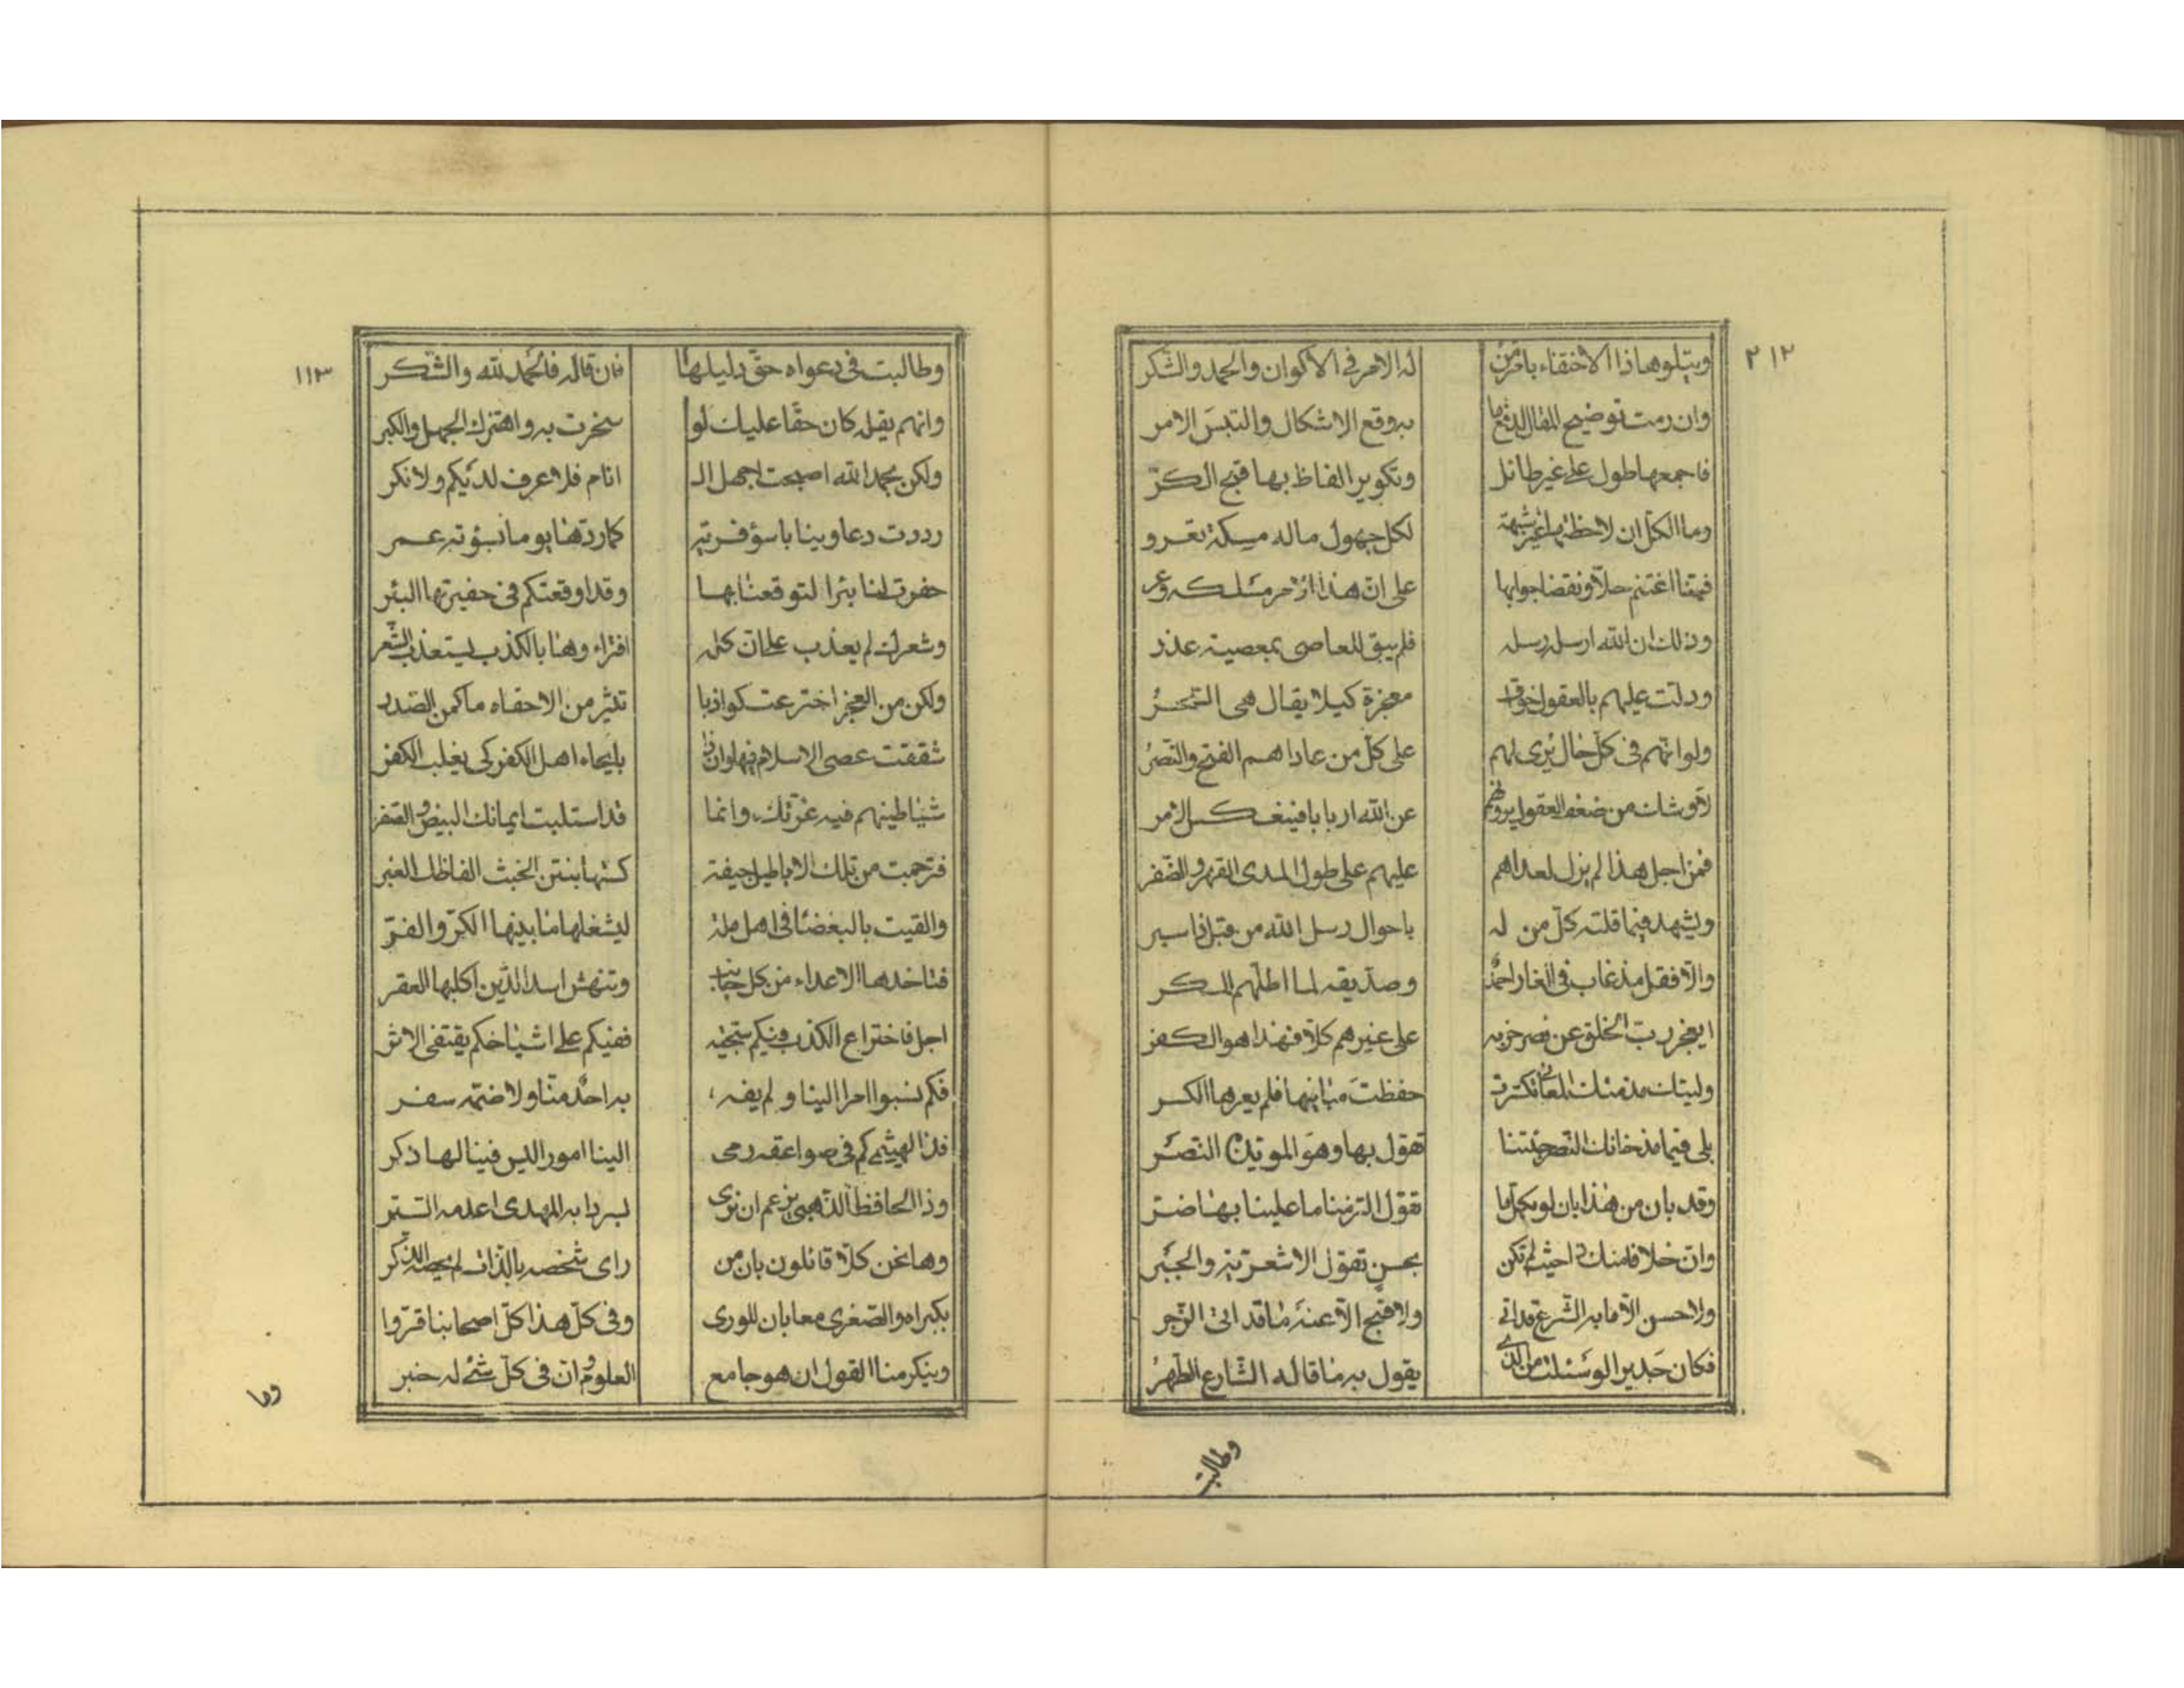 ٢١٢
ويتلوها ذا الاختفاء بامر من له الامر في الاكوان والحمد والشكر
وان رمت توضيح المقال الذي به وقع الاشكال والتبس الامر
فاجمعها طول على غير طائل وتكوير الفاظ بها قبح الكرّ
وما الكل ان لاحظتها غير شبهة لكل جهول ماله مسكة تعرو
فهتنا اغتنم حلا ونقضا جوابها على ان هذا انّ حر مسلكه وعر
وذلك ان الله ارسل رسله فلم يبق للعاصى بمعصيته عذر
ودلّت عليهم بالعقول معجزة كيلا يقال هى السّحر
ولو انهم فى كل حال يُرى لهم على كل من عاداهم الفتح والنّصر
لاوشك من ضعف العقول يرونهم عن الله اربابا فينعكس الامر
فمن اجل هذا لم يزل لعداهم عليهم على طول المدى القهر والظفر
ويشهد فيما قلته كل من له باحوال رسل الله من قبل ذا سبر
والّا فقل مذ غاب فى الغار احمد وصدّيقه لما اطلّهم المكر
ايعجز ربّ الخلق عن نصر حزبه على غيرهم كلّا فهذا هو الكفر
وليتك مذ منك المعانى تكسّرت حفظت مبانيها فلم يعرها الكسر
بلى فيما مذ خانك النصر جئتنا تقول بها وهو الموتد النّصر
وقد بان من هذا بان لو بكل ما تقوّل التزمنا ما علينا بها ضرّ
وان خلافا منك ذا حيث لم تكن بحسن تقول الاشعريّة والجبر
ولا حسن الّا ما به الشّرع قد اتى ولا قبح الّا عنه ما قد اتى الزّجر
فكان جديرا لو سئلت من الذى يقول به ما قاله الشّارع الطّهر
وطالبت
١١٣
وطالبت فى دعواه حقّ دليلها فان قاله فالحمد لله والشّكر
وانهم يقله كان حقّا عليك لو سخرت به واهتزك الجهل والكبر
ولكن بحمد الله اصبحت اجهل الـ انام فلا عرف لديكم ولا نكر
رددت دعاوينا باسؤ فرية كما ردّها يوما بسؤته عمر
حفرت لنا بئرا لتوقعنا بها وقد اوقعتكم فى حفيرتها البئر
وشعرك لم يعذب على ان كلّه افتراء وهنا بالكذب يستعذب الشّعر
ولكن من العجز اخترعت كواذبا تثير من الاحقاد ما كمن الصّدر
شققت عصى الاسلام فيها وان ذا بايحاء اهل الكفر كى يغلب الكفر
شياطينهم فيه غرّتك، وانما قد استلبت ايمانك البيض والصّفر
فترجمت من تلك الاباطيل جيفة كستها بنتن الخبث الفاظك الغبر
والقيت بالبغضاء فى اهل ملّة ليشغلها ما بينها الكرّ والفرّ
فتاخذها الاعداء من كل جانب وتنهش اسد الدّين اكلبها العقر
اجل فاختراع الكذب فيكم سجيّة ففيكم على اشياخكم يقتفى الاثر
فكم نسبوا امرا الينا ولم يفه، به احد منّا ولا ضمّه سفر
فذا الهيثميّ كم فى صواعقه رمى الينا امور اليس فينا لها ذكر
وذا الحافظ الذّهبى يزعم ان نرى بسرداب المهدى اعدمه السّتر
وها نحن كلّا قائلون بان من راى شخصه بالذّات لم يحصه الذّكر
بكبراه والصّغرى معا بان للورى وفى كل هذا كلّ اصحابنا قرّوا
وينكر منا القول ان هو جامع العلوم وان فى كلّ شئ له خبر
وما